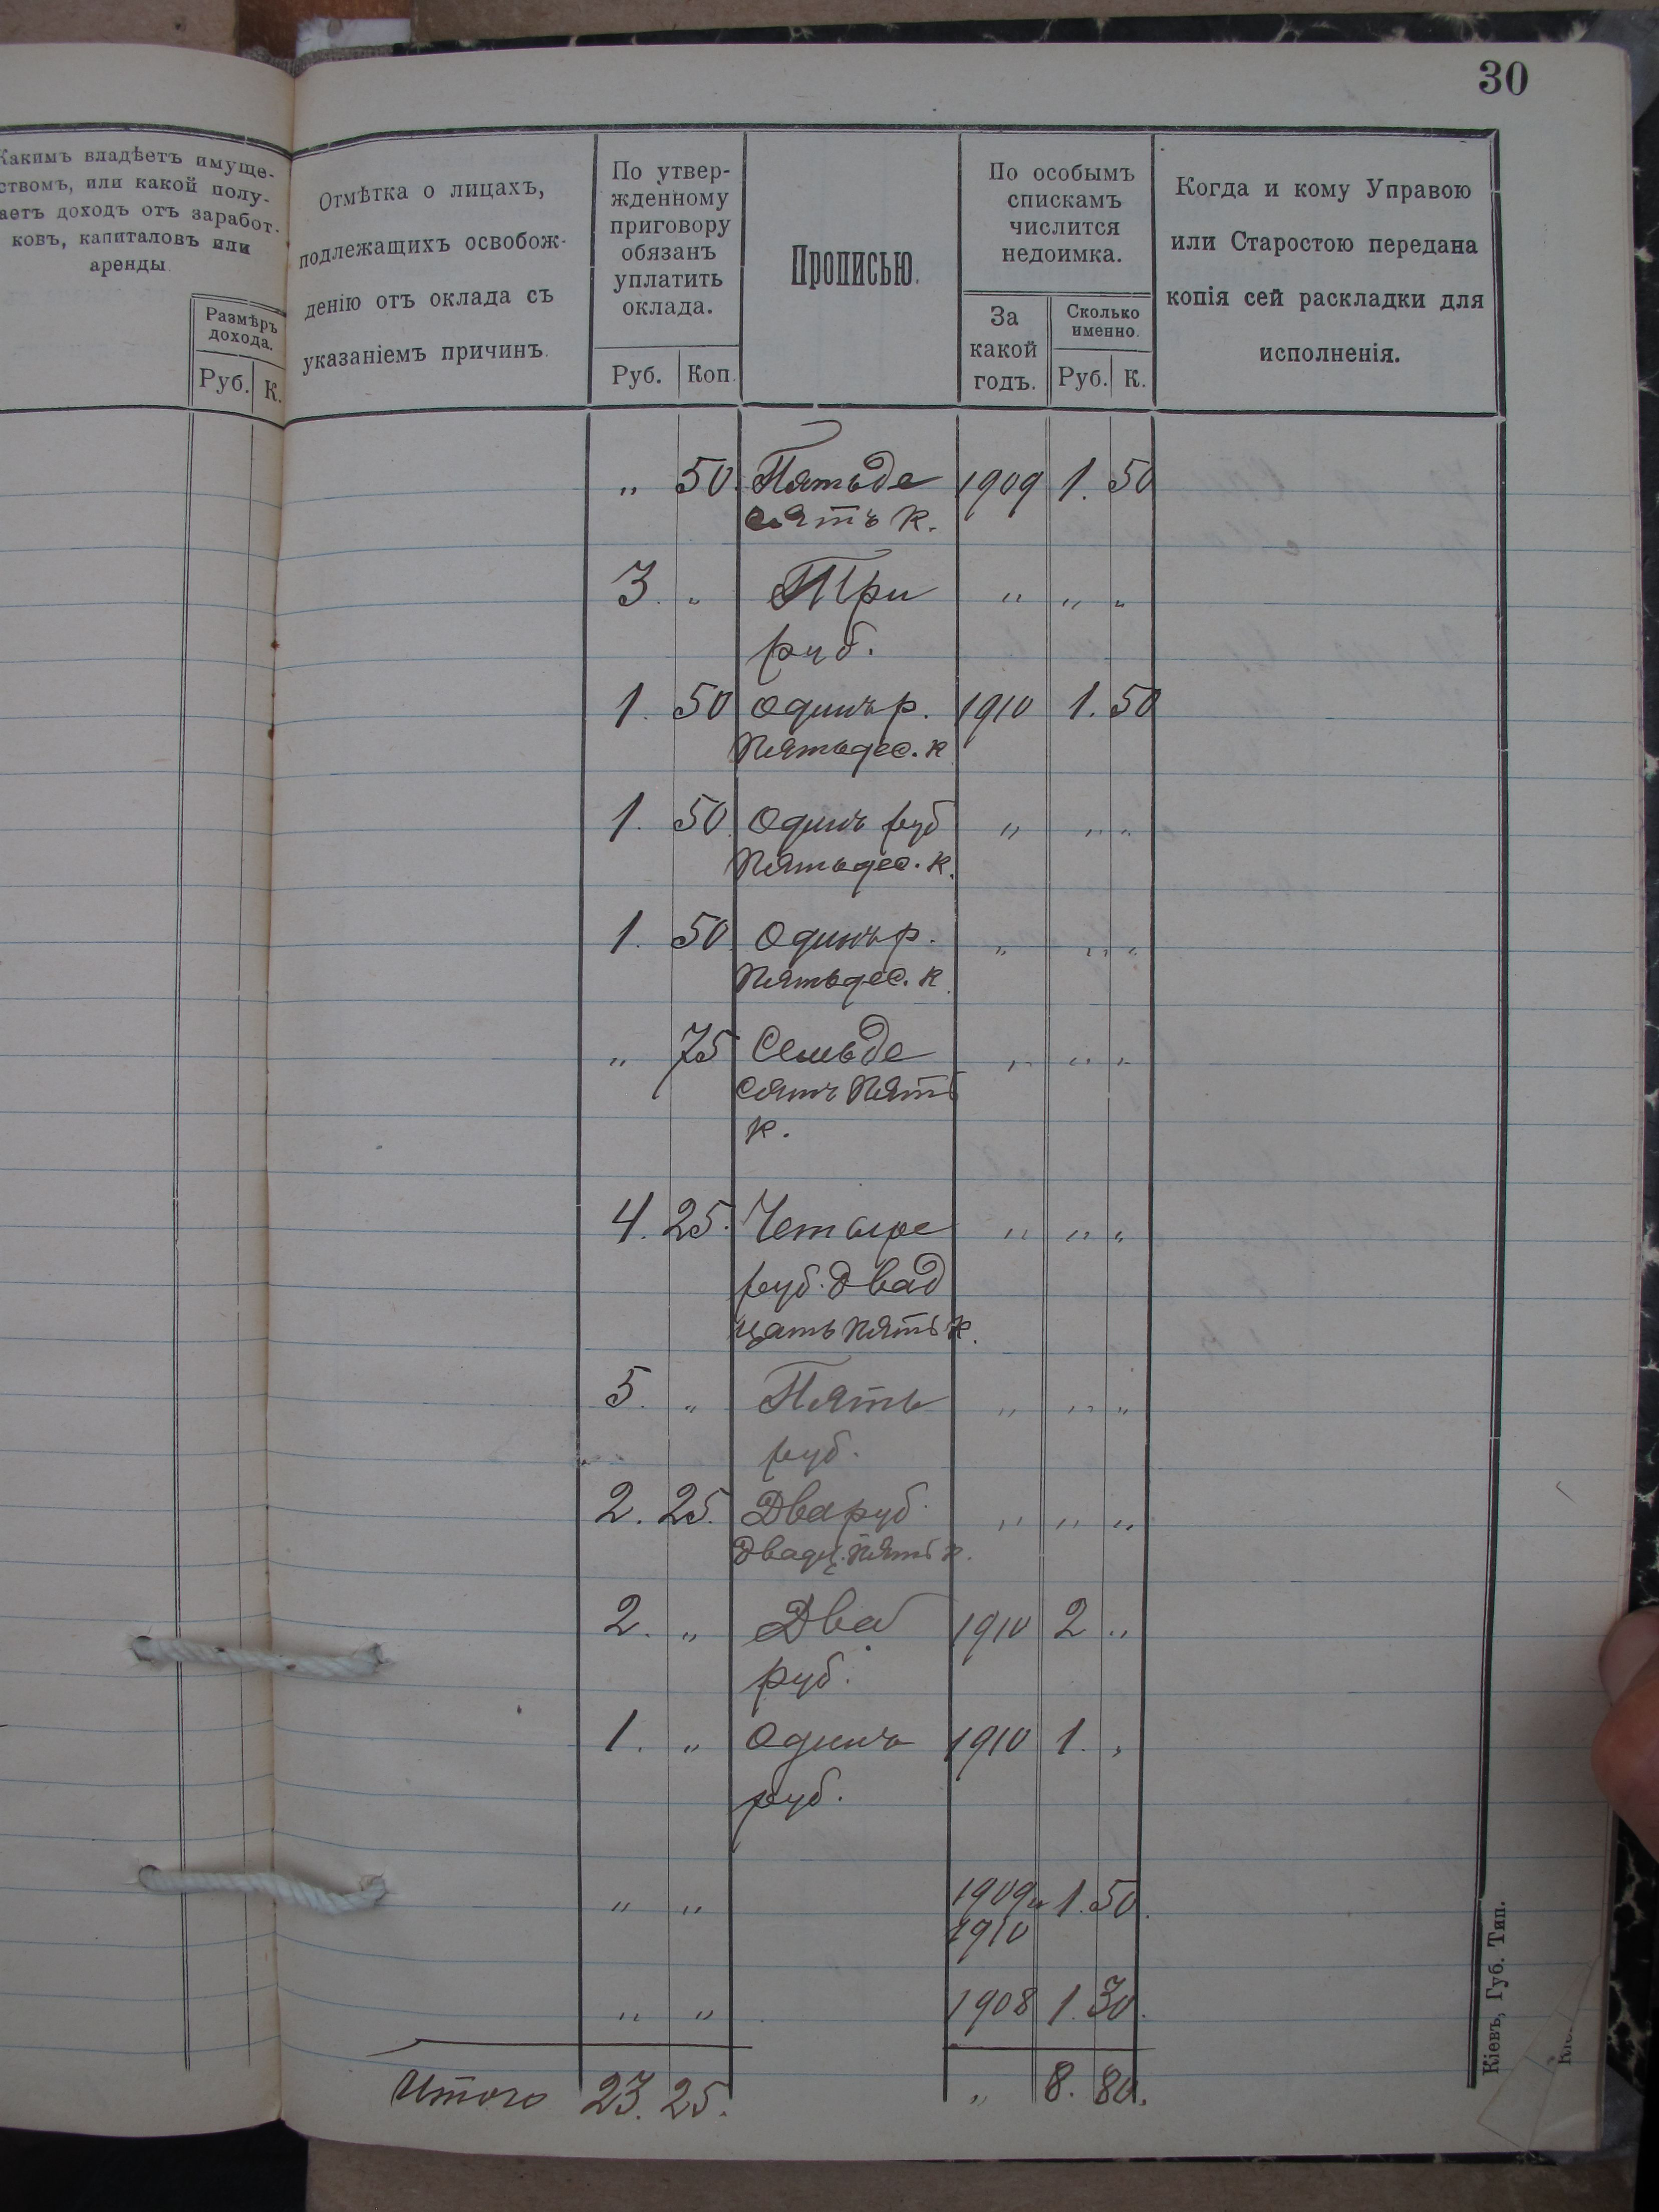 30
Какимъ владѣетъ имуще-
ствомъ, или какой полу-
аетъ доходъ отъ заработ-
ковъ, капиталовъ или
аренды.
Размѣръ
дохода.
Руб. К.
Отмѣтка о лицахъ,
подлежащихъ освобож-
денію отъ оклада съ
указаніемъ причинъ.
По утвер-
жденному
приговору
обязанъ
уплатить
оклада.
Руб. Коп.
Прописью.
По особымъ
спискамъ
числится
недоимка.
За
какой
годъ.
Сколько
именно.
Руб. К.
Когда и кому Управою
или Старостою передана
копія сей раскладки для
исполненія.
„ 50. Пятьде 1909 1. 50
сятъ к.
3. „ Три „ „ „
руб.
1. 50 Одинъ р. 1910 1. 50
Пятьдес. к
1. 50. Одинъ руб „ „ „
Пятьдес. к.
1. 50 Одинъ р. „ „ „
Пятьдес. к.
„ 75 Семьде „ „ „
сятъ Пять
к.
4. 25. Четыре „ „ „
руб. двад
цать пять к.
5. „ Пять „ „ „
руб.
2. 25. Два руб. „ „ „
двадц. пять к.
2. „ Два 1910 2 „
руб.
1. „ Одинъ 1910 1. „
руб.
„ „ 1909 и 1. 50.
1910
„ „ 1908 1. 30.
Итого 23. 25. „ 8. 80.
Кіевъ, Губ. Тип.